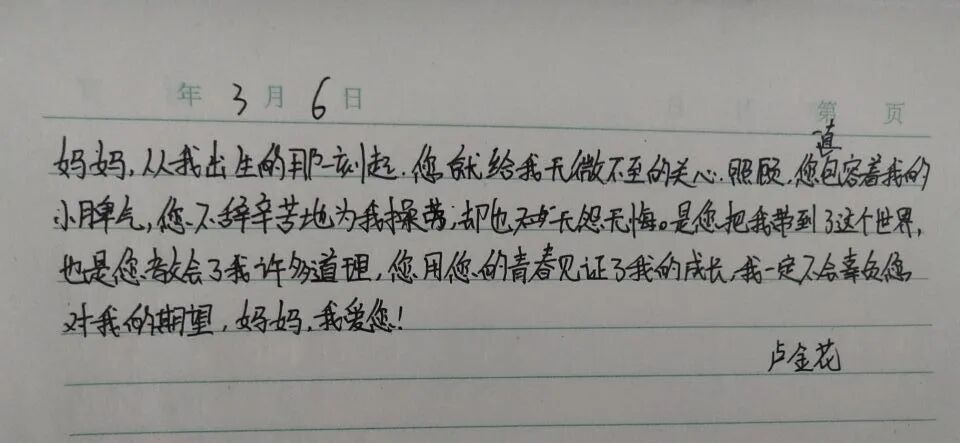 年 3 月 6 日 第 页
直
妈妈,从我出生的那一刻起.您就给我无微不至的关心.照顾.您包容着我的
小脾气,您不辞辛苦地为我操劳,却也无怨无悔。是您把我带到了这个世界,
也是您教会了我许多道理,您用您的青春见证了我的成长,我一定不会辜负您
对我的期望,妈妈,我爱您!
卢金花